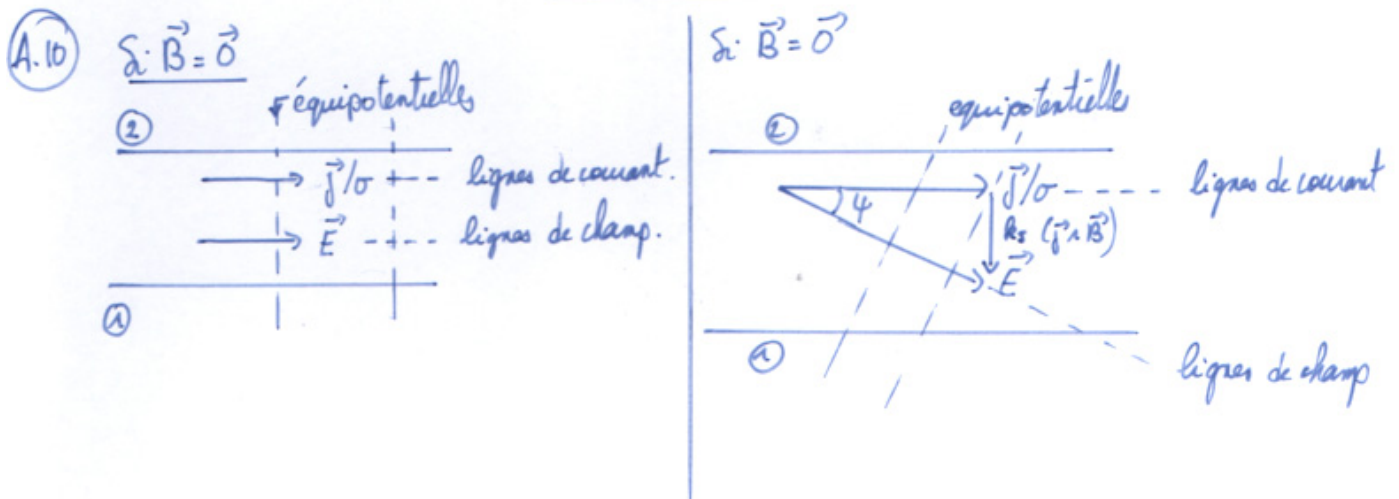 A.10
Si B⃗ = 0⃗
équipotentielles
②
j⃗/σ
lignes de courant.
E⃗
lignes de champ.
①
Si B⃗ = 0⃗
equipotentielles
②
j⃗/σ
lignes de courant
ψ
(j⃗ ∧ B⃗)
E⃗
①
lignes de champ